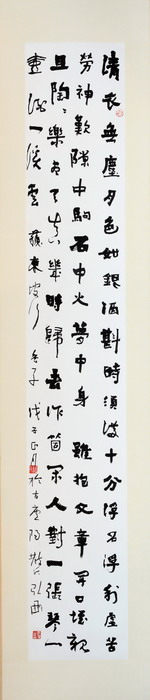 清夜無塵月色如銀酒斟時須滿十分浮名浮利虛苦
勞神歎隙中駒石中火夢中身雖抱文章開口誰親
且陶陶樂盡天真幾時歸去作箇閒人對一張琴一
壺酒一溪雲蘇東坡行香子戊子正月